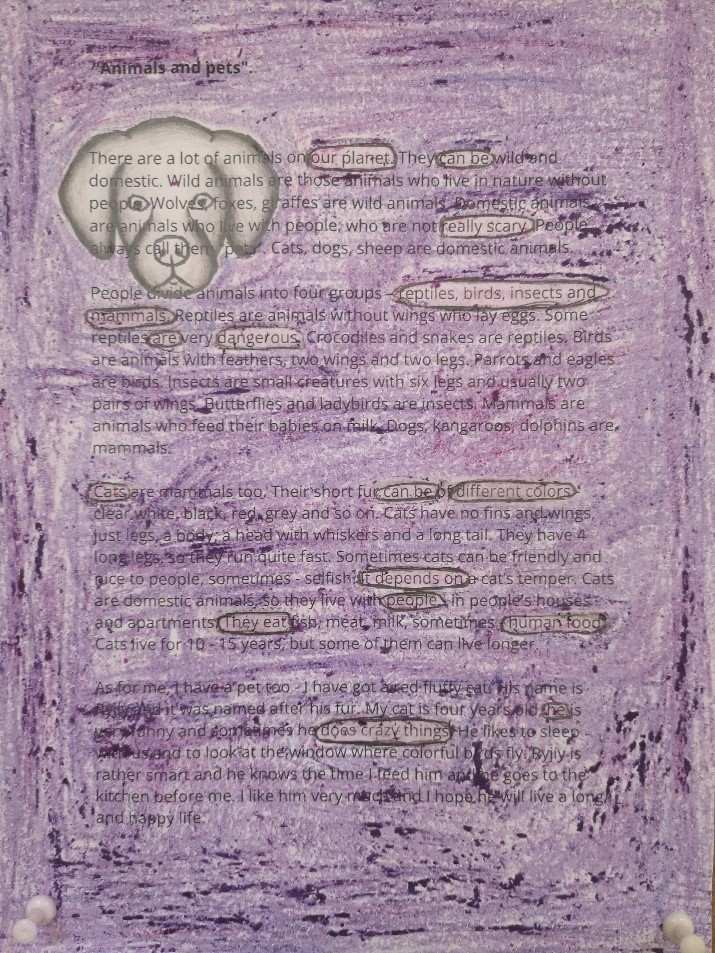 "Animals and pets".
There are a lot of animals on our planet. They can be wild and
domestic. Wild animals are those animals who live in nature without
people. Wolves, foxes, giraffes are wild animals. Domestic animals
are animals who live with people, who are not really scary. People
always call them "pets". Cats, dogs, sheep are domestic animals.
People divide animals into four groups – reptiles, birds, insects and
mammals. Reptiles are animals without wings who lay eggs. Some
reptiles are very dangerous. Crocodiles and snakes are reptiles. Birds
are animals with feathers, two wings and two legs. Parrots and eagles
are birds. Insects are small creatures with six legs and usually two
pairs of wings. Butterflies and ladybirds are insects. Mammals are
animals who feed their babies on milk. Dogs, kangaroos, dolphins are
mammals.
Cats are mammals too. Their short fur can be of different colors
clear white, black, red, grey and so on. Cats have no fins and wings,
just legs, a body, a head with whiskers and a long tail. They have 4
long legs, so they run quite fast. Sometimes cats can be friendly and
nice to people, sometimes - selfish. It depends on a cat's temper. Cats
are domestic animals, so they live with people, in people's houses
and apartments. They eat fish, meat, milk, sometimes - human food.
Cats live for 10 - 15 years, but some of them can live longer.
As for me, I have a pet too - I have got a red fluffy cat. His name is
and it was named after his fur. My cat is four years old, he is
very funny and sometimes he does crazy things. He likes to sleep
with us and to look at the window where colorful birds fly. Ryjiy is
rather smart and he knows the time I feed him and he goes to the
kitchen before me. I like him very much and I hope he will live a long
and happy life.